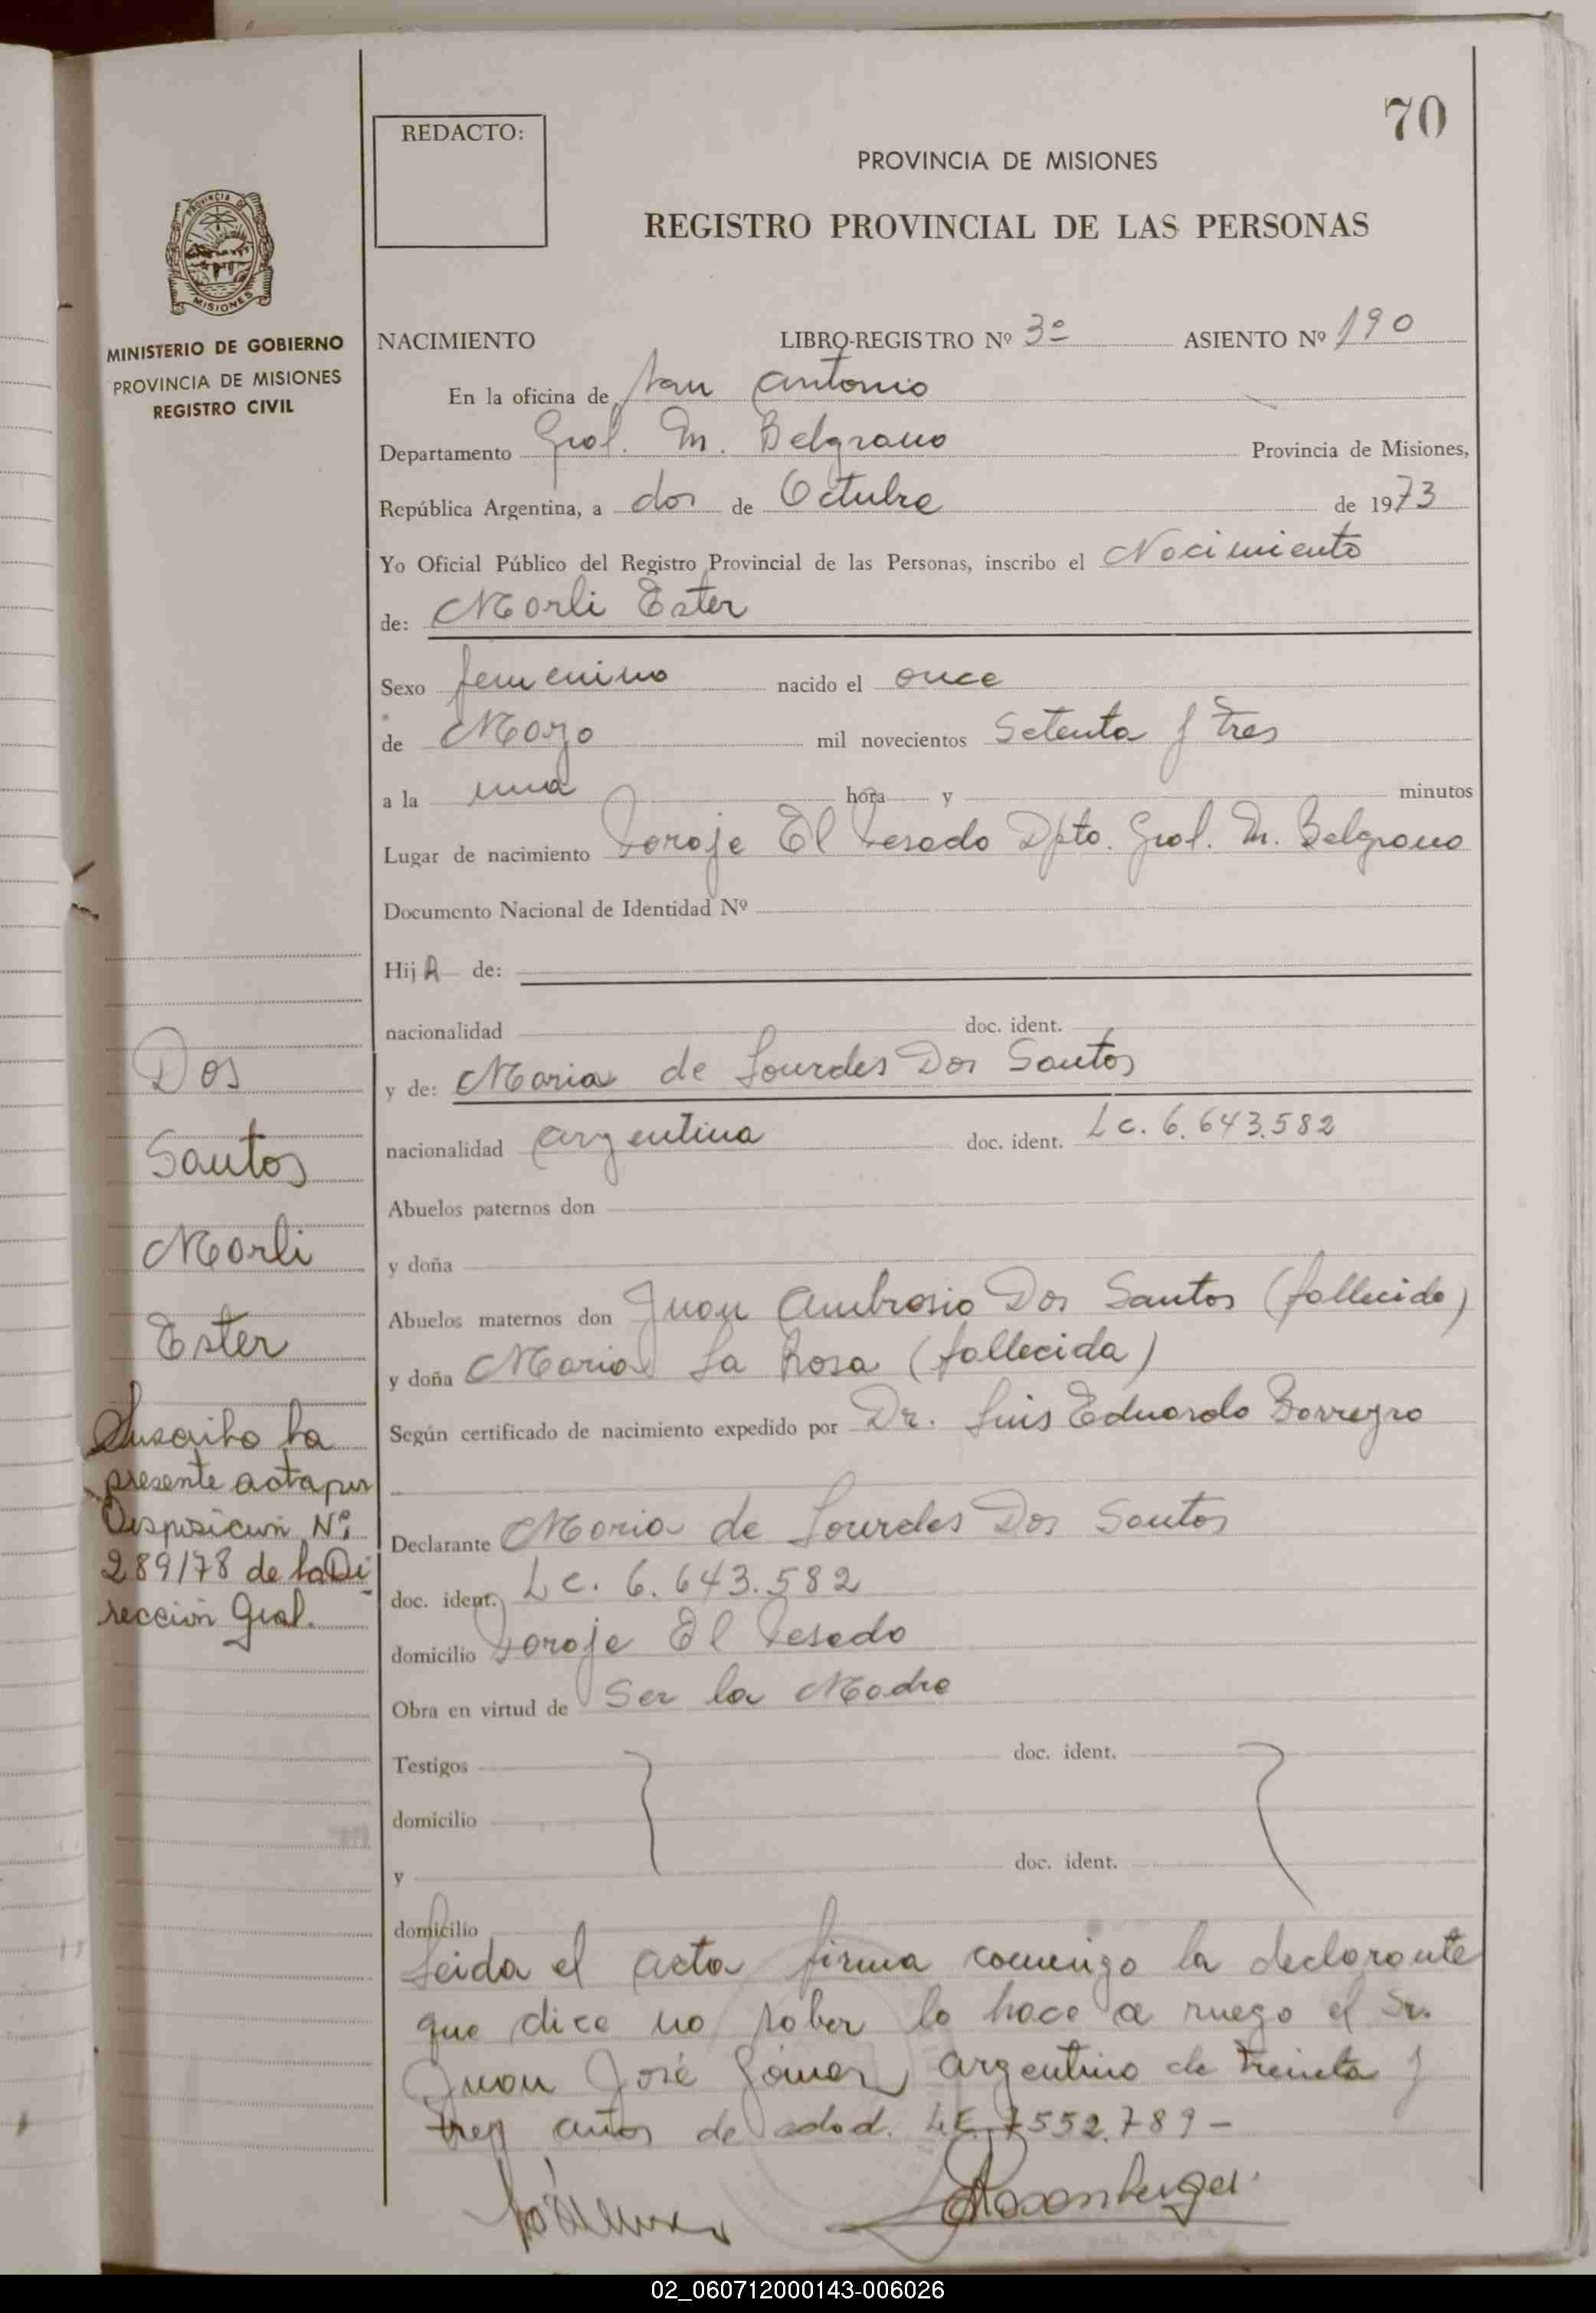 70
REDACTO:
PROVINCIA DE MISIONES
REGISTRO PROVINCIAL DE LAS PERSONAS
PROVINCIA DE
MISIONES
MINISTERIO DE GOBIERNO
PROVINCIA DE MISIONES
REGISTRO CIVIL
NACIMIENTO LIBRO-REGISTRO Nº 3º ASIENTO Nº 190
En la oficina de San Antonio
Departamento Gral. M. Belgrano Provincia de Misiones,
República Argentina, a dos de Octubre de 1973
Yo Oficial Público del Registro Provincial de las Personas, inscribo el Nacimiento
de: Marli Ester
Sexo femenino nacido el once
de Marzo mil novecientos Setenta y tres
a la una hora y minutos
Lugar de nacimiento Paraje El Pesado Dpto. Gral. M. Belgrano
Documento Nacional de Identidad Nº
Hij A de:
nacionalidad doc. ident.
y de: Maria de Lourdes Dos Santos
nacionalidad argentina doc. ident. L c. 6.643.582
Abuelos paternos don
y doña
Abuelos maternos don Juan Ambrosio Dos Santos (fallecido)
y doña Maria La Rosa (fallecida)
Según certificado de nacimiento expedido por Dr. Luis Eduardo Borregro
Declarante Maria de Lourdes Dos Santos
doc. ident. L c. 6.643.582
domicilio Paraje El Pesado
Obra en virtud de Ser la Madre
Testigos doc. ident.
domicilio
y doc. ident.
domicilio
Leida el acta firma conmigo la declarante
que dice no saber lo hace a ruego el Sr.
Juan José Gómez argentino de treinta y
tres años de edad. L.E. 7552.789 -
Dos
Santos
Marli
Ester
Suscribo la
presente acta por
Disposicion Nº
289/78 de la Di
reccion Gral.
02_060712000143-006026